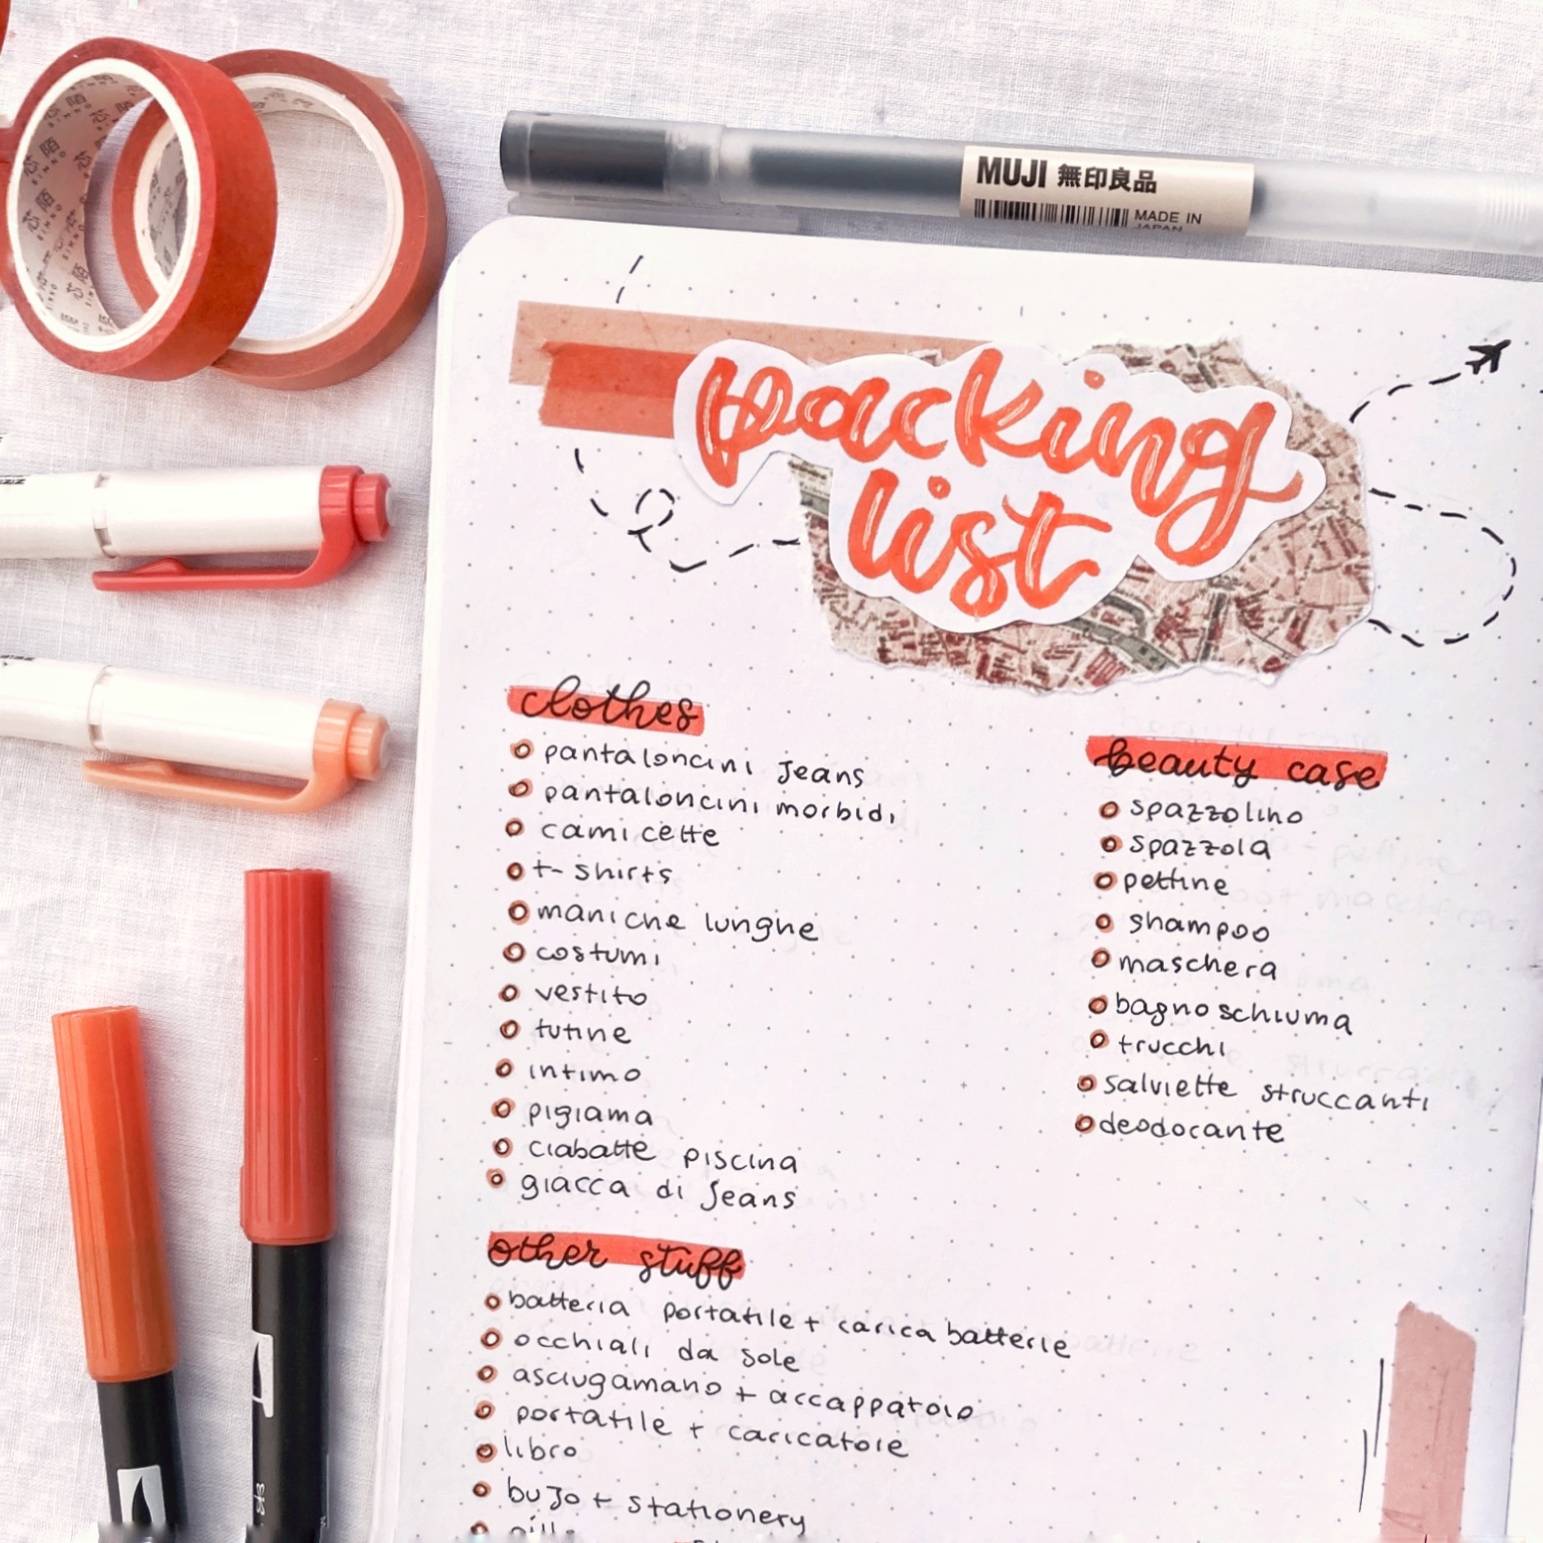 MUJI 無印良品
MADE IN
JAPAN
packing
list
clothes
pantaloncini jeans
pantaloncini morbidi
camicette
t-shirts
maniche lunghe
costumi
vestito
tutine
intimo
pigiama
ciabatte piscina
giacca di jeans
other stuff
batteria portatile + carica batterie
occhiali da sole
asciugamano + accappatoio
portatile + caricatore
libro
bujo + stationery
beauty case
spazzolino
spazzola
pettine
shampoo
maschera
bagnoschiuma
trucchi
salviette struccanti
deodocante